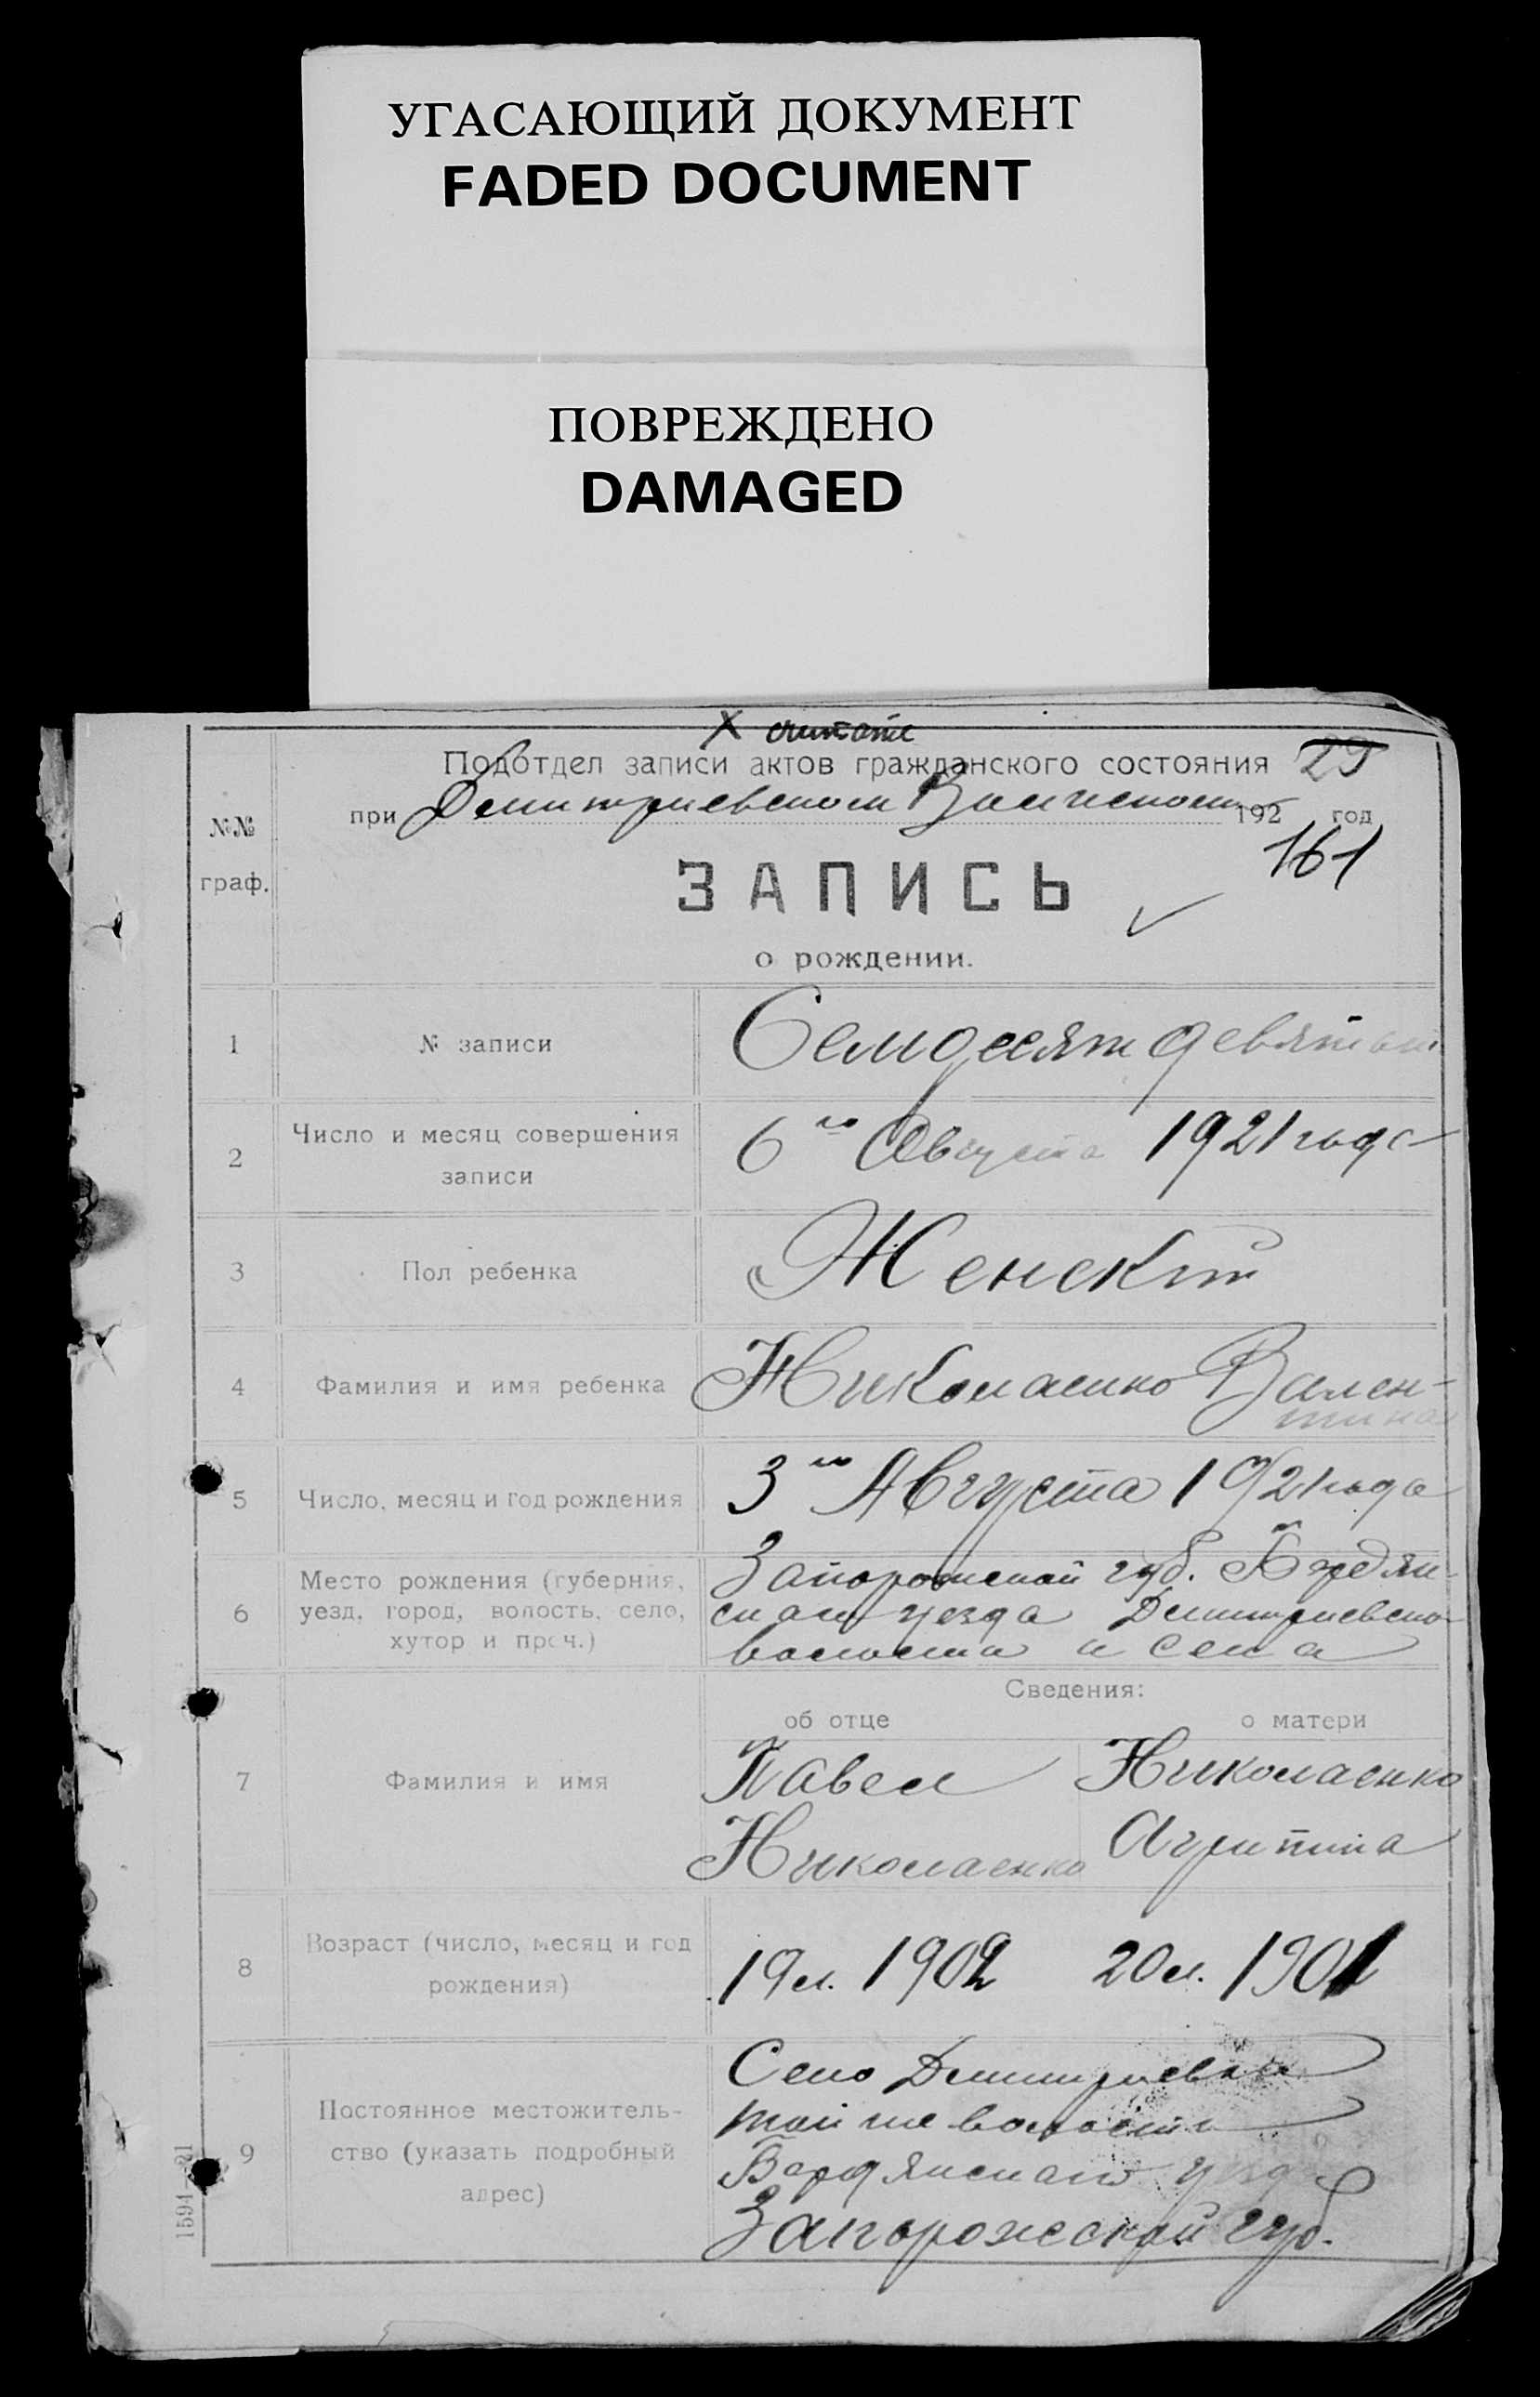 УГАСАЮЩИЙ ДОКУМЕНТ
FADED DOCUMENT
ПОВРЕЖДЕНО
DAMAGED
X считать
Подотдел записи актов гражданского состояния 29
при Демитриевском Вол 192 год
161
№№
граф.
ЗАПИСЬ
о рождении.
1 № записи Семдесят девятый
2 Число и месяц совершения
записи
6го Августа 1921 года
3 Пол ребенка Женский
4 Фамилия и имя ребенка Николаенко Вален-
тина
5 Число, месяц и год рождения 3го Августа 1921 года
6 Место рождения (губерния,
уезд, город, волость, село,
хутор и проч.)
Запорожской губ. Бердян-
скаго уезда Демитриевско
волости и села
Сведения:
об отце о матери
7 Фамилия и имя
Павел Николаенко
Николаенко Агрипина
8 Возраст (число, месяц и год
рождения)
19 л. 1902 20 л. 1901
9 Постоянное местожитель-
ство (указать подробный
адрес)
Село Демитриевки
той же волости
Бердянскаго уезд
Запорожской губ.
1594—21